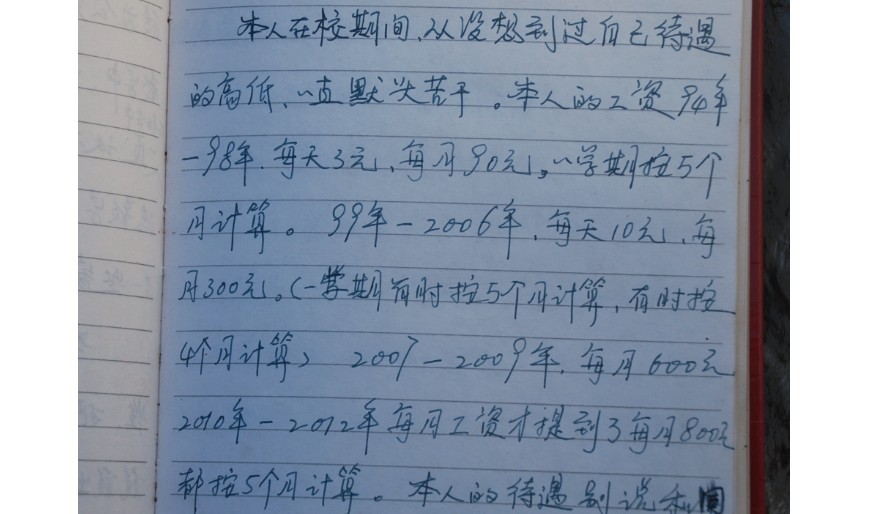 本人在校期间,从没想到过自己待遇
的高低、一直默头苦干。本人的工资94年
—98年.每天3元、每月90元,一学期按5个
月计算。99年—2006年、每天10元、每
月300元。(一学期有时按5个月计算,有时按
4个月计算) 2007—2009年.每月600元
2010年—2012年每月工资才提到了每月800元
都按5个月计算。本人的待遇别说和同